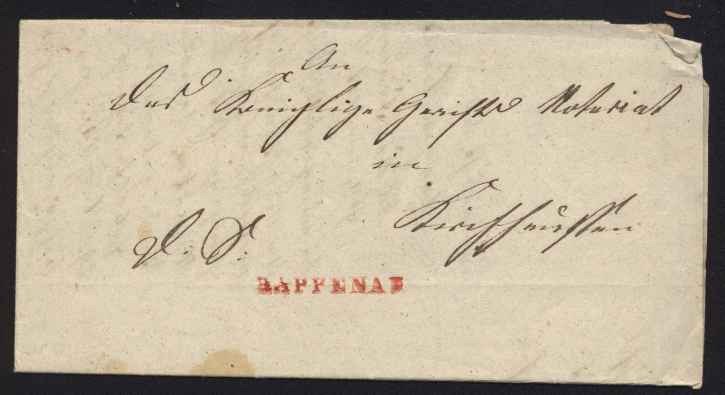 An
das Königliche Gerichts Notariat
in
Kirchhausen
D. S.
RAPPENAU